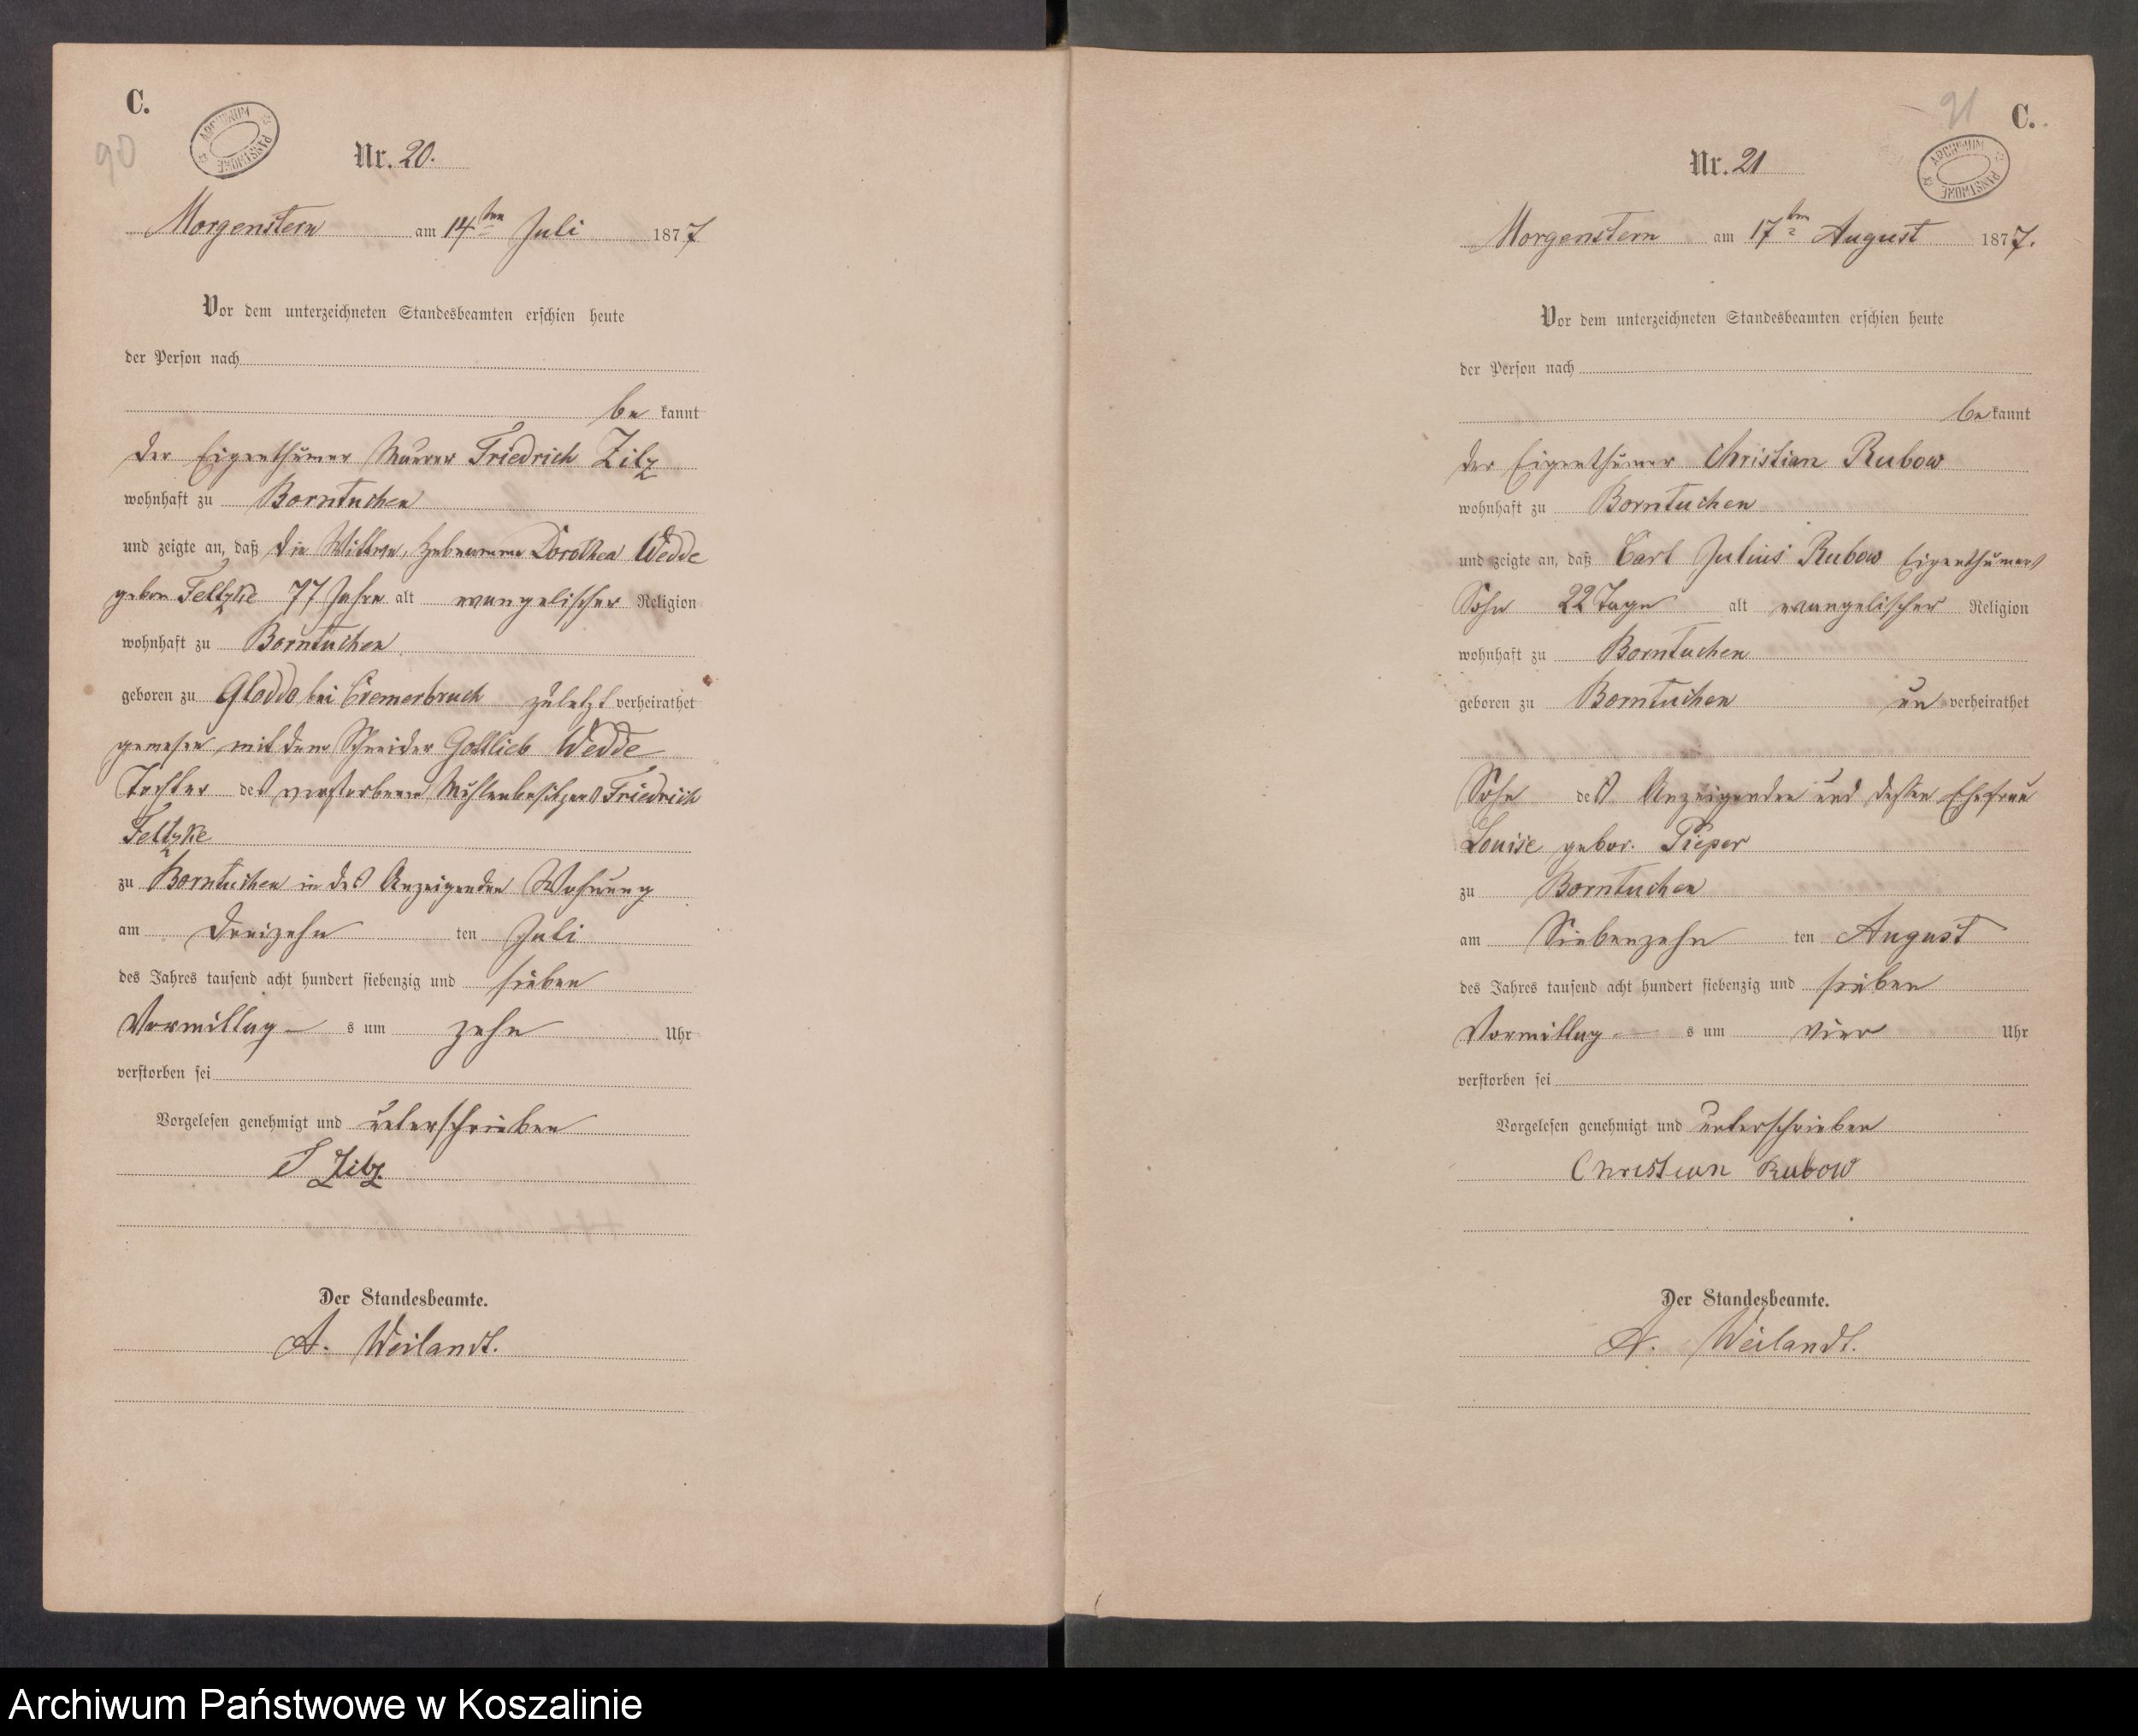 C.
90
ARCHIWUM PAŃSTWOWE
Nr. 20.
Morgenstern am 14ten Juli 1877
Vor dem unterzeichneten Standesbeamten erschien heute
der Person nach
be kannt
der Eigenthümer Maurer Friedrich Zilz
wohnhaft zu Borntuchen
und zeigte an, daß die Wittwe, Hebeamme Dorothea Wedde
gebor. Feltzke 77 Jahre alt evangelischer Religion
wohnhaft zu Borntuchen
geboren zu Gloddo bei Cremerbruch zuletzt verheirathet
gewesen mit dem Schneider Gottlieb Wedde
Tochter des verstorbenen Mühlenbesitzers Friedrich
Feltzke
zu Borntuchen in des Anzeigenden Wohnung
am dreizehn ten Juli
des Jahres tausend acht hundert siebenzig und sieben
Vormittag s um zehn Uhr
verstorben sei
Vorgelesen genehmigt und unterschrieben
F Zilz.
Der Standesbeamte.
A. Weilandt.
91
C.
ARCHIWUM PAŃSTWOWE
Nr. 21
Morgenstern am 17ten August 1877.
Vor dem unterzeichneten Standesbeamten erschien heute
der Person nach
be kannt
der Eigenthümer Christian Rubow
wohnhaft zu Borntuchen
und zeigte an, daß Carl Julius Rubow Eigenthümers
Sohn 22 Tage alt evangelischer Religion
wohnhaft zu Borntuchen
geboren zu Borntuchen un verheirathet
Sohn des Anzeigenden und dessen Ehefrau
Louise gebor. Pieper
zu Borntuchen
am Siebenzehn ten August
des Jahres tausend acht hundert siebenzig und sieben
Vormittag s um vier Uhr
verstorben sei
Vorgelesen genehmigt und unterschrieben
Christian Rubow
Der Standesbeamte.
A. Weilandt.
Archiwum Państwowe w Koszalinie